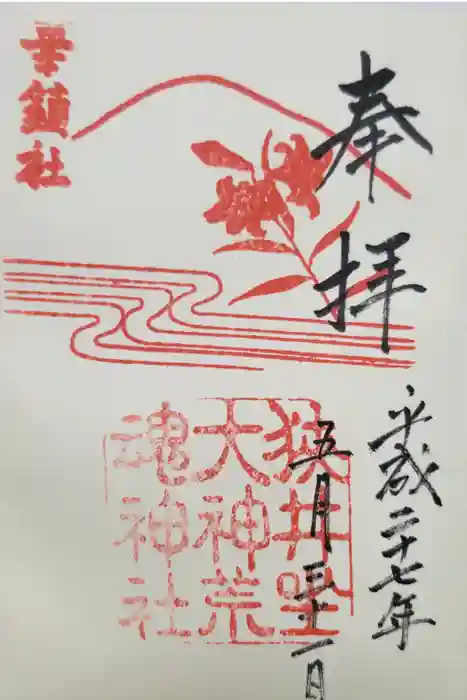 奉拝
平成二十七年
五月三十一日
華鎮社
狭井坐
大神荒
魂神社